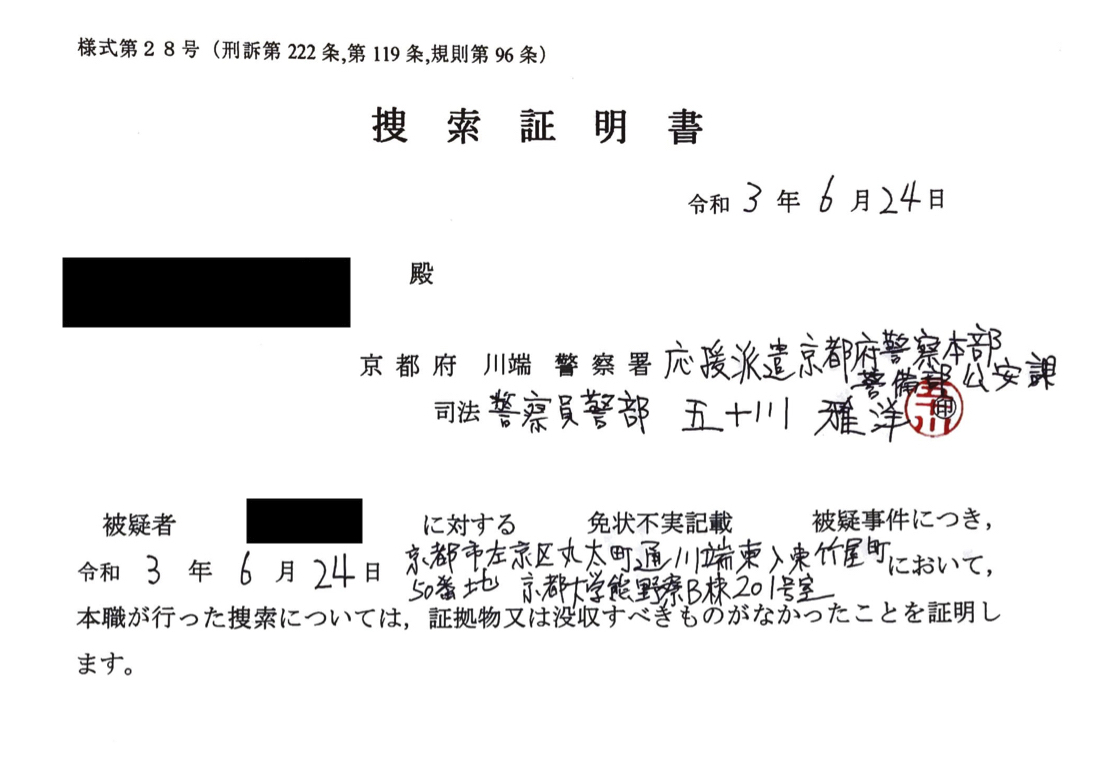 様式第２８号（刑訴第222条,第119条,規則第96条）
捜索証明書
令和 3 年 6 月 24 日
殿
京都府 川端 警察署 応援派遣京都府警察本部
警備部公安課
司法 警察員警部 五十川 雅洋
被疑者 に対する 免状不実記載 被疑事件につき，
令和 3 年 6 月 24 日 京都市左京区丸太町通川端東入東竹屋町
50番地 京都大学熊野寮B棟201号室 において，
本職が行った捜索については，証拠物又は没収すべきものがなかったことを証明し
ます。